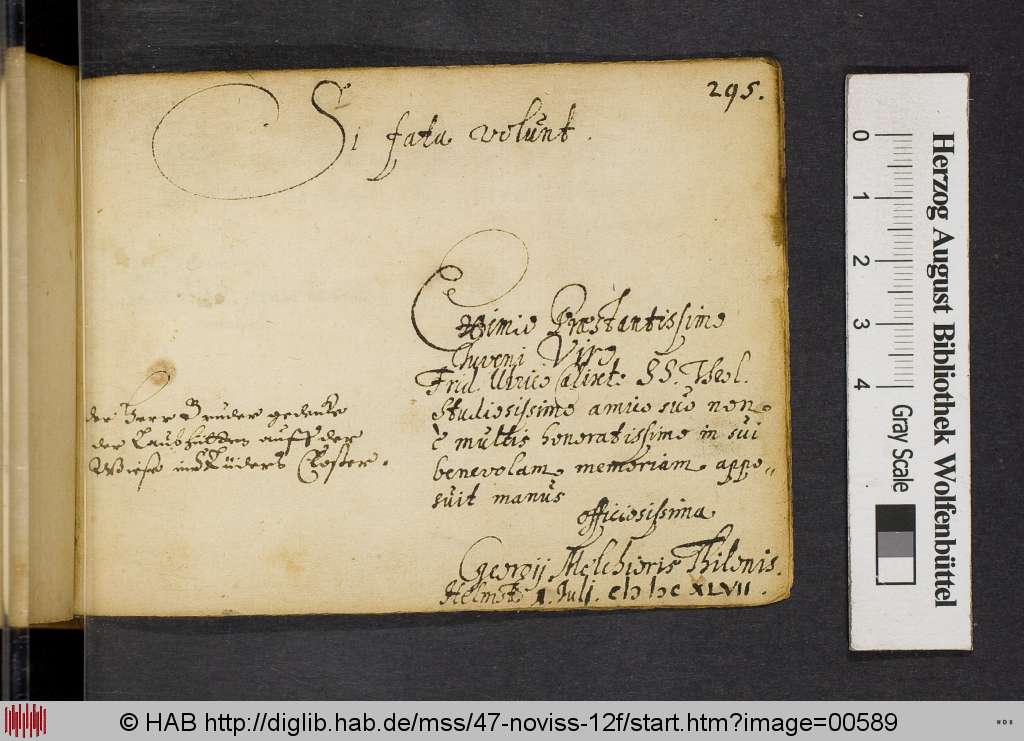 295.
Si fata volunt.
Eximio Præstantissimo
Iuveni Viro
Frid. Ulrico Calixto SS. Theol.
studiosissimo amico suo non
è multis honoratissimo in sui
benevolam memoriam appo-
suit manus
officiosissima
Georgij Melchioris Thilonis.
Helmst. 1. Julj. cIↄ Iↄc XLVII.
der Herr Bruder gedencke
der Laubhütten auff der
Wiese im Closter.
0
1
2
3
4
Gray Scale
Herzog August Bibliothek Wolfenbüttel
© HAB http://diglib.hab.de/mss/47-noviss-12f/start.htm?image=00589